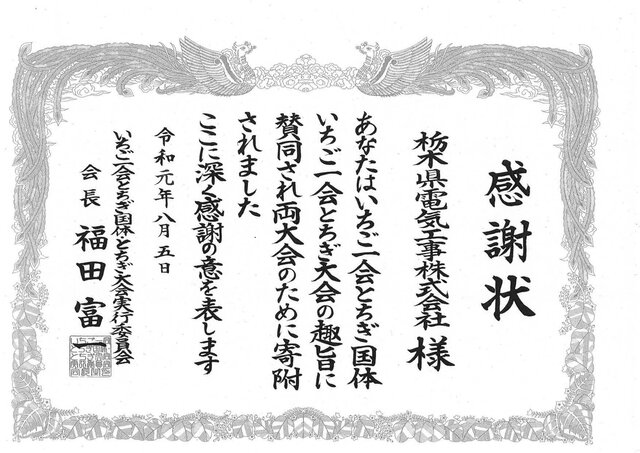 感謝状
栃木県電気工事株式会社 様
あなたはいちご一会とちぎ国体
いちご一会とちぎ大会の趣旨に
賛同され両大会のために寄附
されました
ここに深く感謝の意を表します
令和元年八月五日
いちご一会とちぎ国体・とちぎ大会実行委員会
会長 福田富一